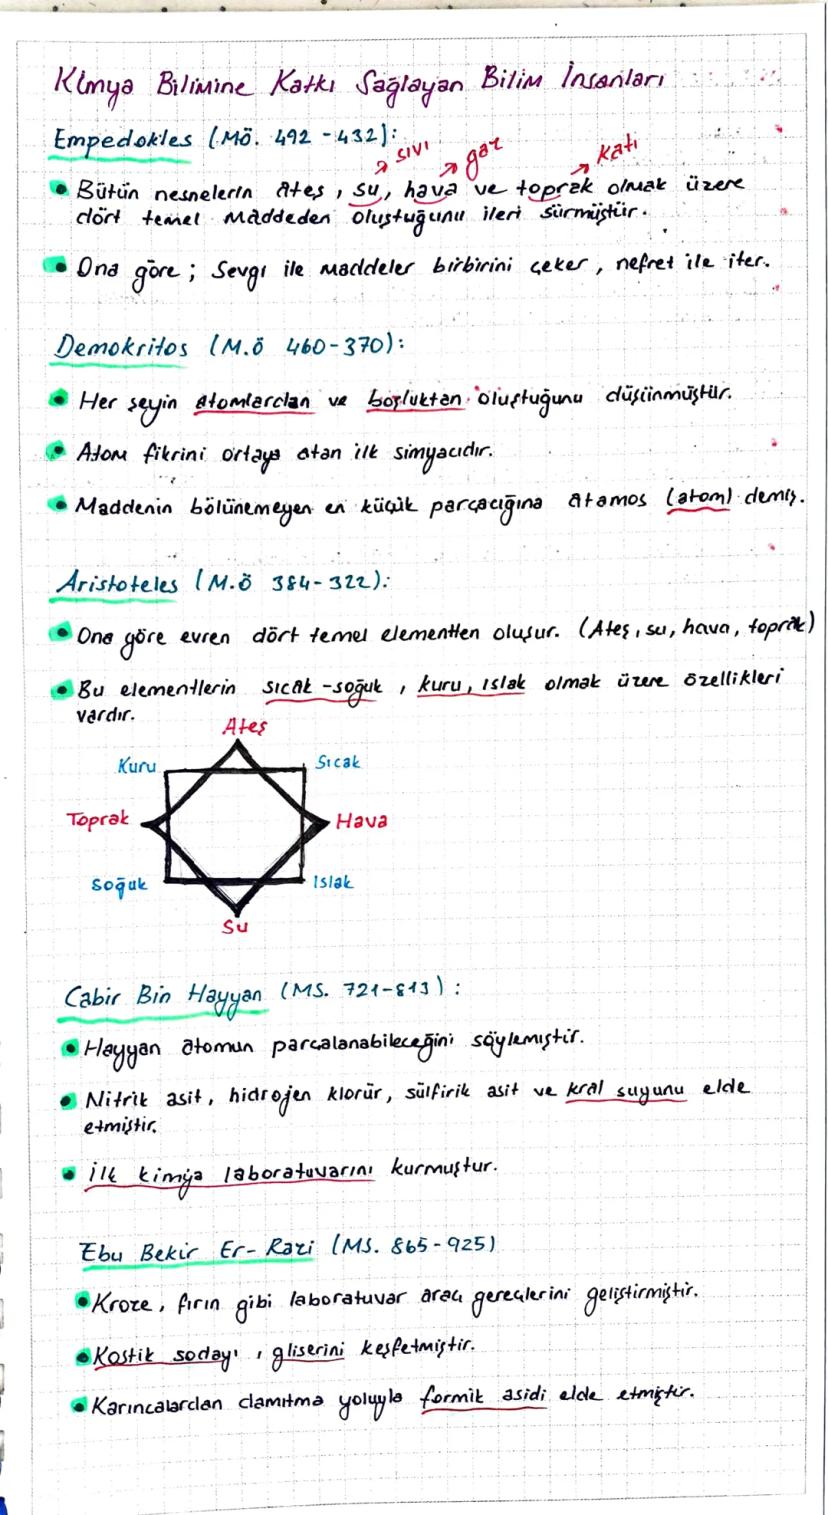 Kimya Bilimine Katkı Sağlayan Bilim İnsanları
Empedokles (MÖ. 492 - 432):
sıvı gaz katı
Bütün nesnelerin ateş, su, hava ve toprak olmak üzere
dört temel maddeden oluştuğunu ileri sürmüştür.
Ona göre; Sevgi ile maddeler birbirini çeker, nefret ile iter.
Demokritos (M.Ö 460-370):
Her şeyin atomlardan ve boşluktan oluştuğunu düşünmüştür.
Atom fikrini ortaya atan ilk simyacıdır.
Maddenin bölünemeyen en küçük parçacığına atamos (atom) demiş.
Aristoteles (M.Ö 384-322):
Ona göre evren dört temel elementten oluşur. (Ateş, su, hava, toprak)
Bu elementlerin sıcak-soğuk, kuru, ıslak olmak üzere özellikleri
vardır.
Ateş
Kuru Sıcak
Toprak Hava
Soğuk Islak
Su
Cabir Bin Hayyan (MS. 721-813):
Hayyan atomun parçalanabileceğini söylemiştir.
Nitrik asit, hidrojen klorür, sülfirik asit ve kral suyunu elde
etmiştir.
İlk kimya laboratuvarını kurmuştur.
Ebu Bekir Er-Razi (MS. 865-925)
Kroze, fırın gibi laboratuvar araç gereçlerini geliştirmiştir.
Kostik sodayı, gliserini keşfetmiştir.
Karıncalardan damıtma yoluyla formik asidi elde etmiştir.